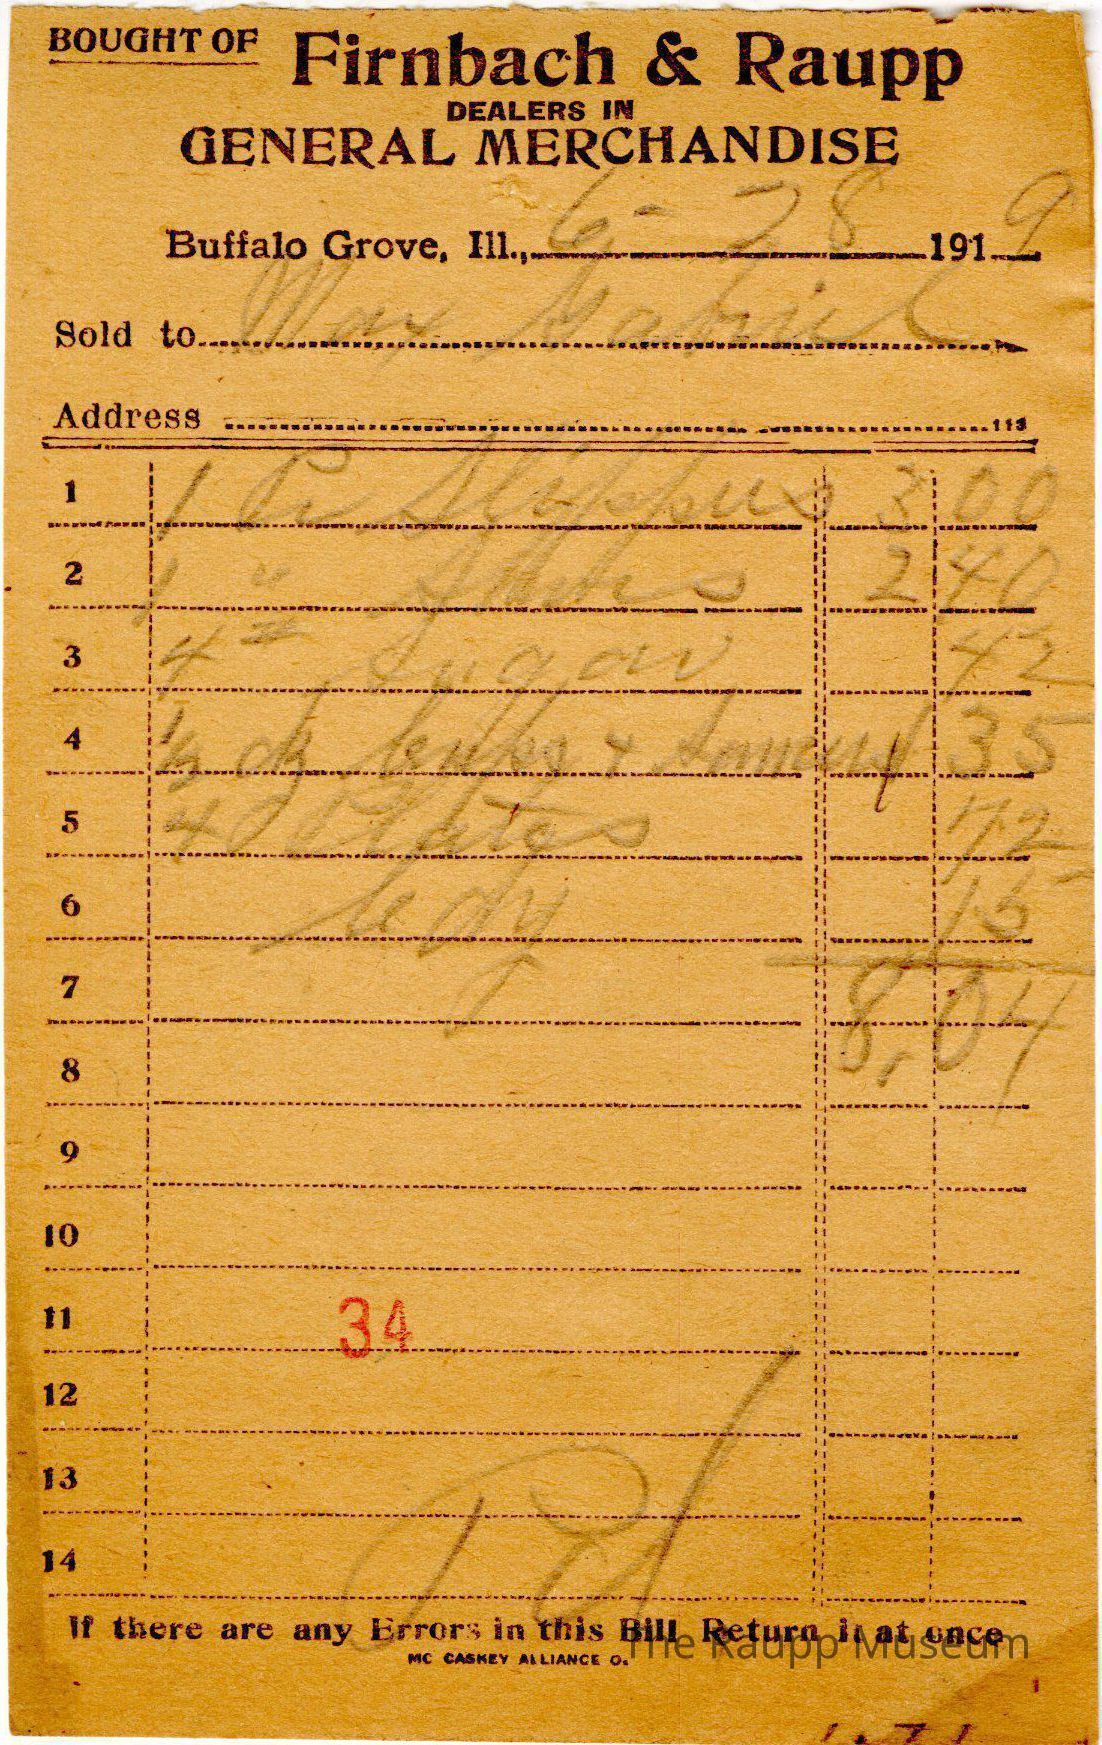 BOUGHT OF Firnbach & Raupp
DEALERS IN
GENERAL MERCHANDISE
Buffalo Grove, Ill., 6- 28 1919
Sold to Max Gabriel
Address
113
1 1 Pr Slippers 3 00
2 1 " 2 40
3 4 # Sugar 42
4 ½ dz Cups & 1 35
5 4 Plates 72
6 Cdy 15
7 8.04
8
9
10
11 34
12
13
14 Pd
If there are any Errors in this Bill Return it at once
MC CASKEY ALLIANCE O.
The Raupp Museum